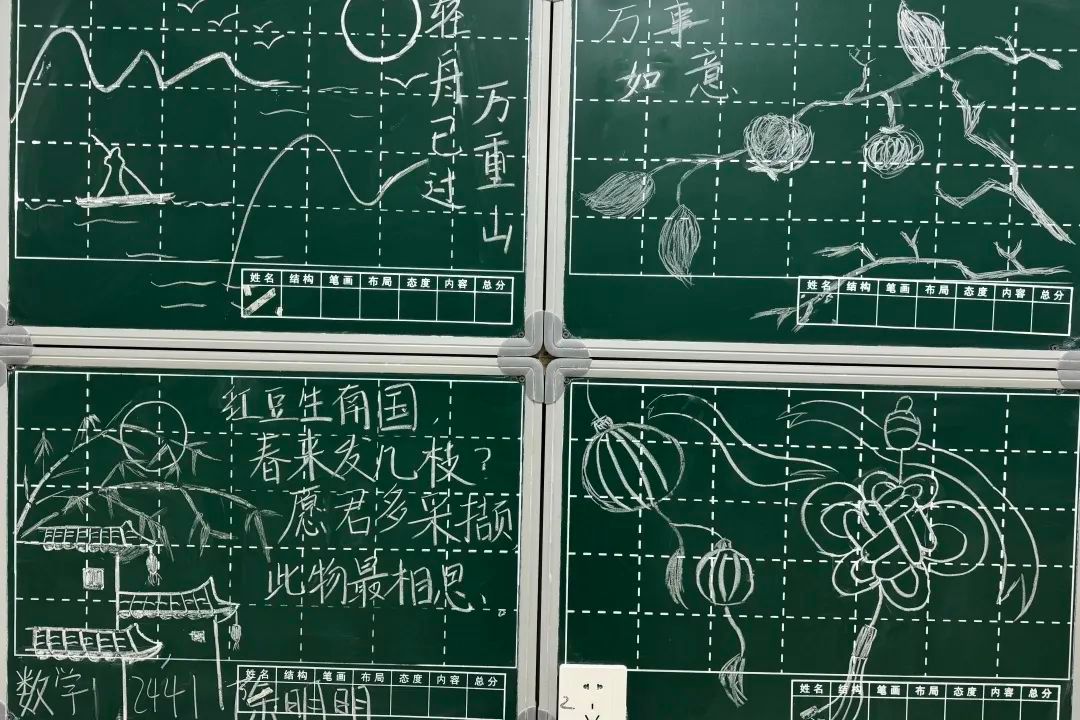 轻舟已过
万重山
姓名 结构 笔画 布局 态度 内容 总分
万事
如意
姓名 结构 笔画 布局 态度 内容 总分
红豆生南国
春来发几枝?
愿君多采撷
此物最相思、
数学1 2441
姓名 结构 笔画 布局 态度 内容 总分
明明
姓名 结构 笔画 布局 态度 内容 总分
2